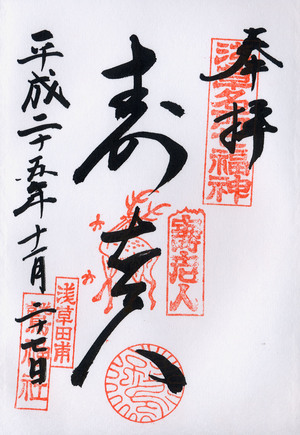 奉拝
浅草名所七福神
寿老人
寿老人
平成二十五年十二月二十七日
浅草田甫
鷲神社